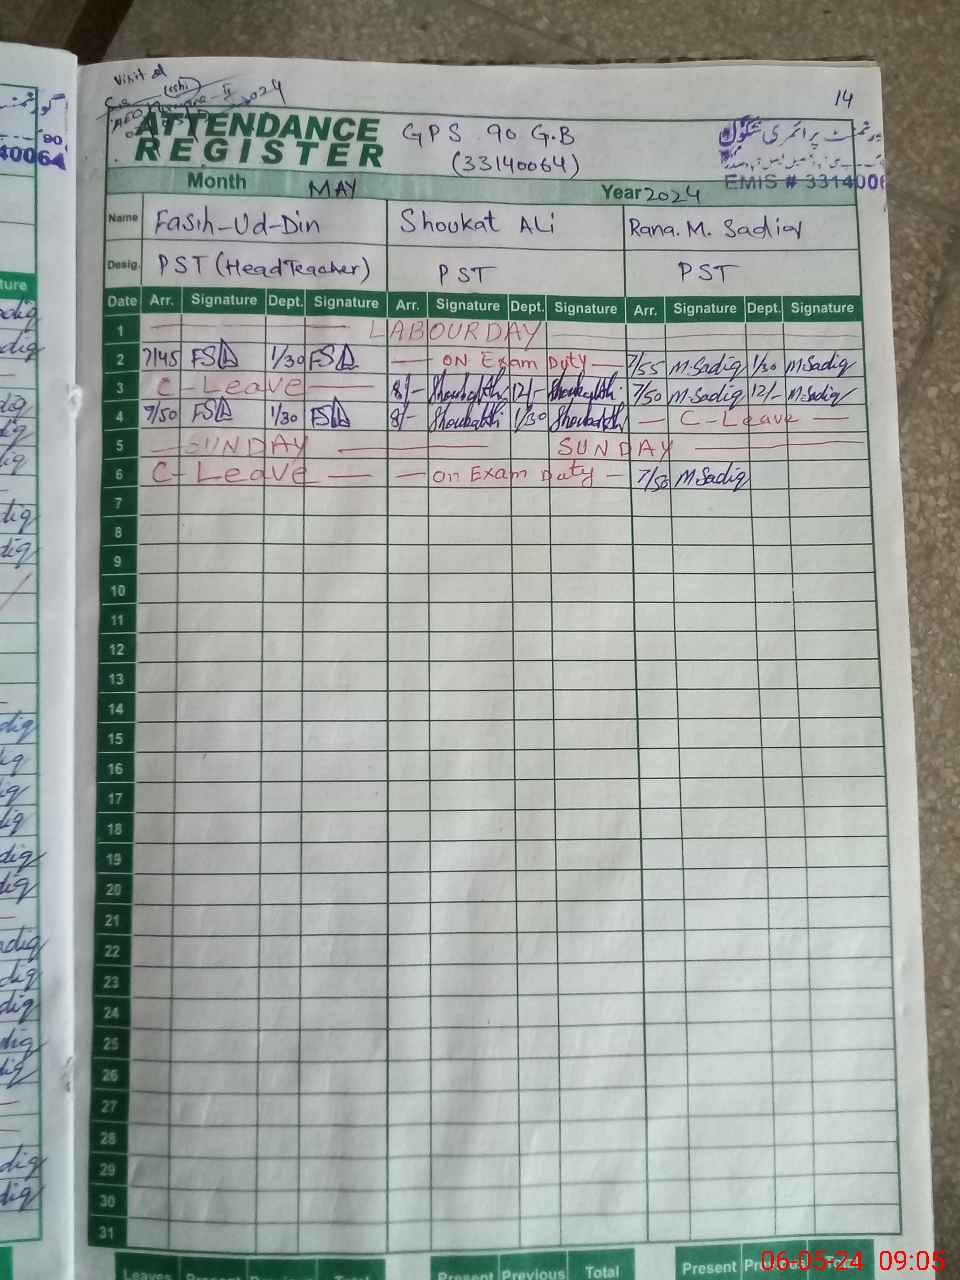 Visit of
14
ATTENDANCE REGISTER
GPS 90 G.B
(33140064)
EMIS # 331400
Month MAY Year 2024
Name Fasih-Ud-Din Shoukat ALi Rana. M. Sadiq
Desig. PST (HeadTeacher) PST PST
Date Arr. Signature Dept. Signature Arr. Signature Dept. Signature Arr. Signature Dept. Signature
1 LABOUR DAY
2 7/45 FSD 1/30 FSD ON Exam Duty 7/55 M.Sadiq 1/30 M.Sadiq
3 C-Leave 8/- Shoukatali 12/- Shoukatali 7/50 M.Sadiq 12/- M.Sadiq
4 7/50 FSD 1/30 FSD 8/- Shoukatali 1/30 Shoukatali C-Leave
5 SUNDAY SUNDAY
6 C-Leave On Exam Duty 7/50 M.Sadiq
7
8
9
10
11
12
13
14
15
16
17
18
19
20
21
22
23
24
25
26
27
28
29
30
31
Leaves Present Previous Total Present Previous Total Present Total
06-05-24 09:05